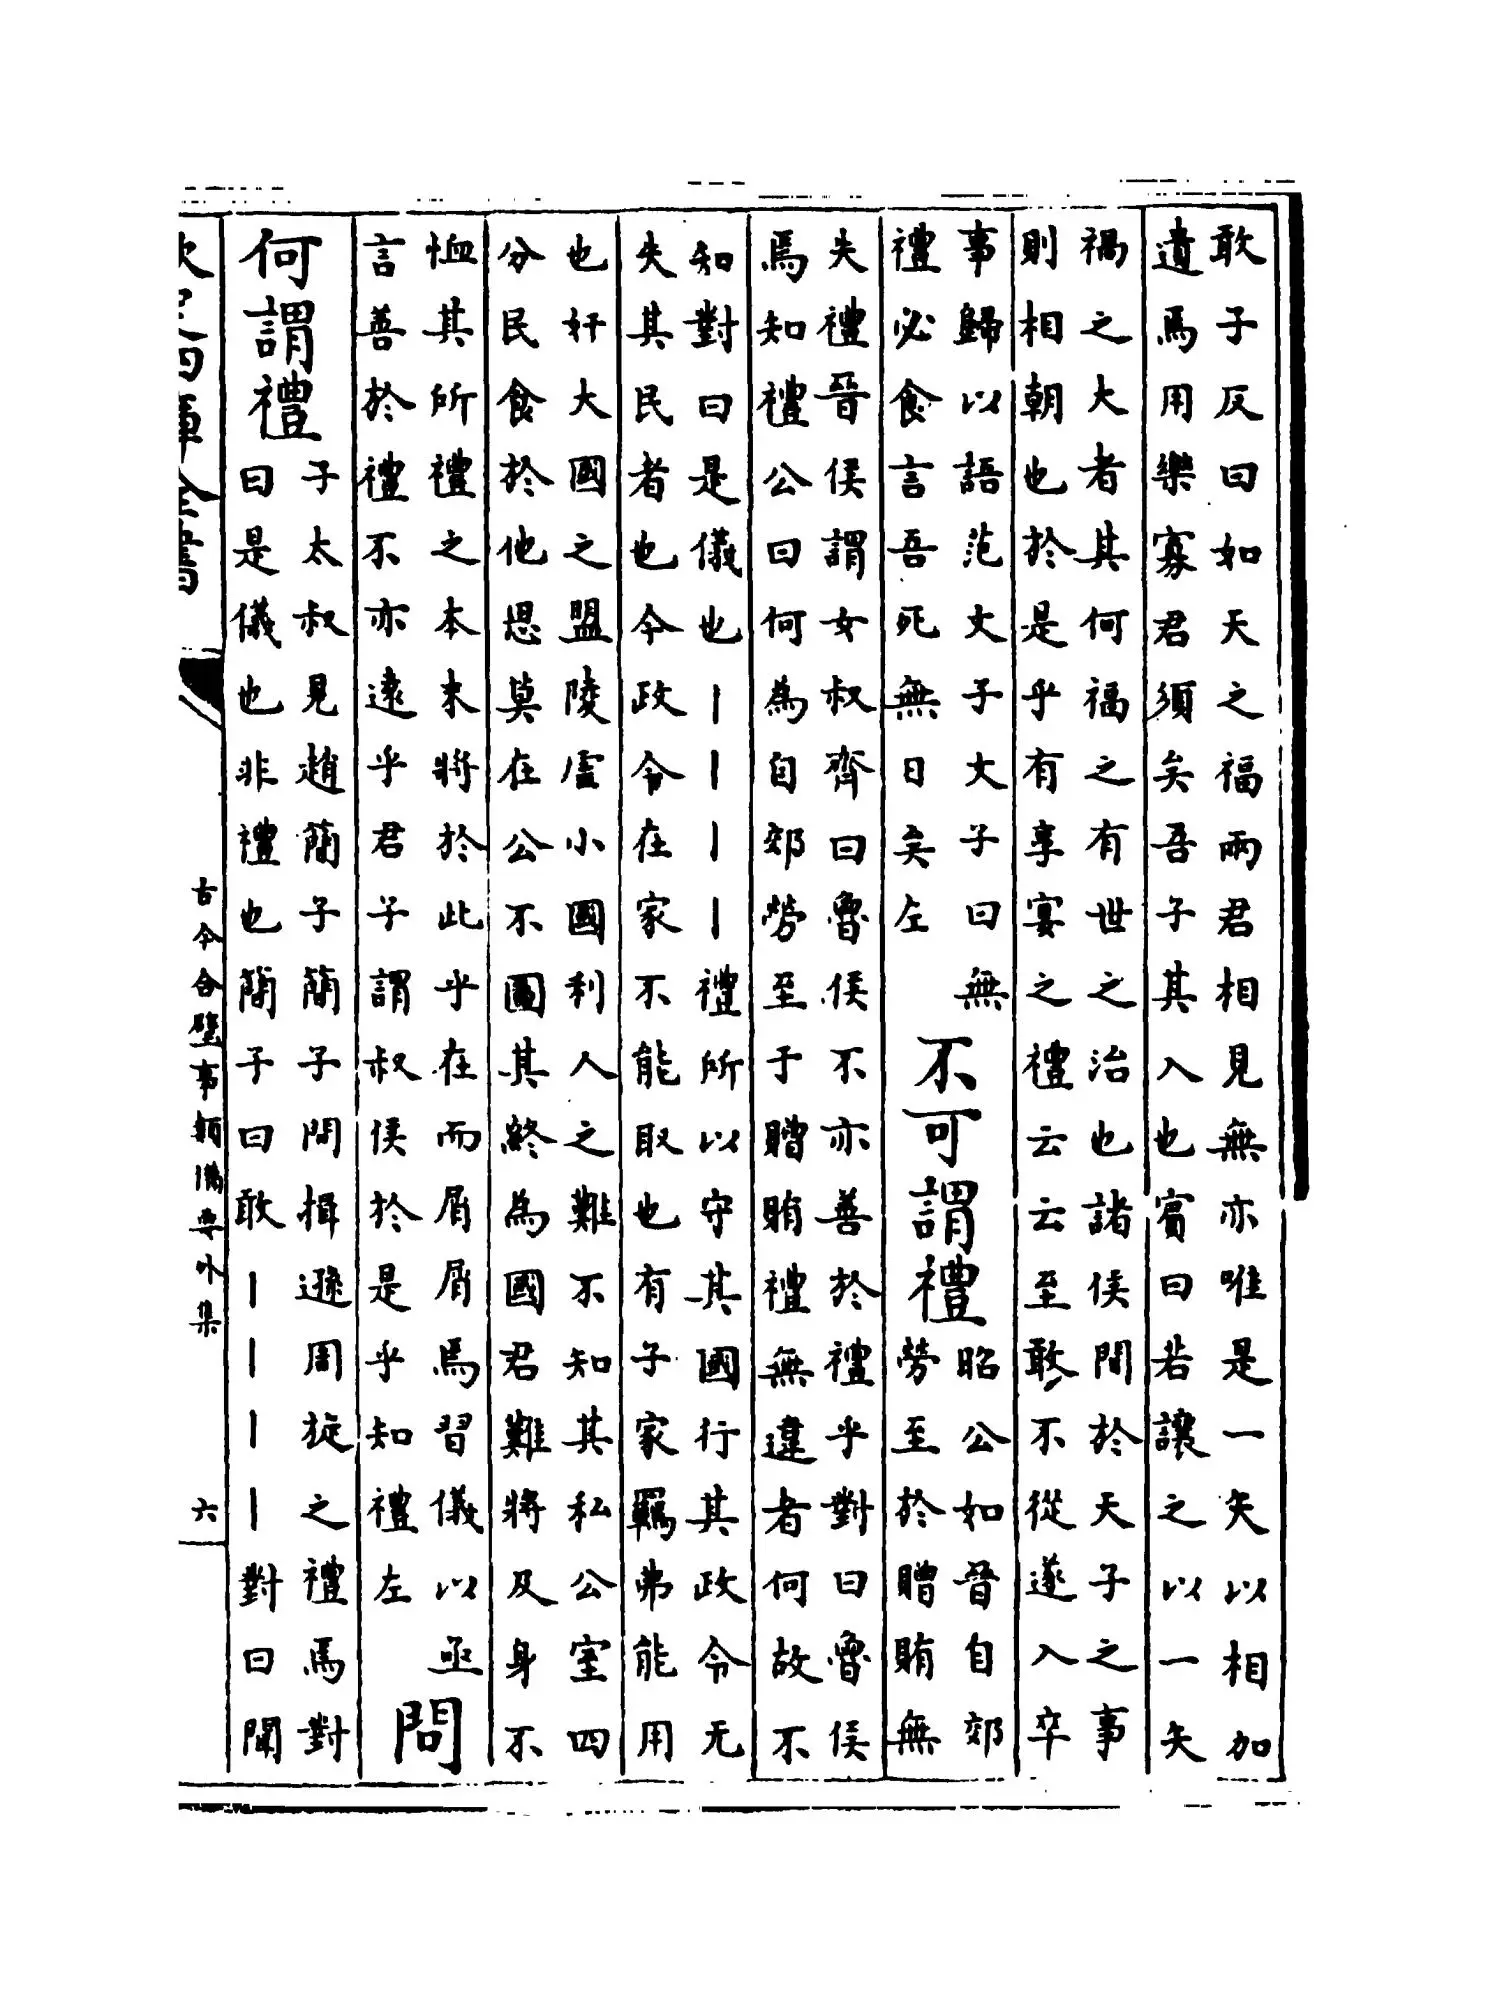 敢子反曰如天之福兩君相見無亦唯是一矢以相加
遺焉用樂寡君須矣吾子其入也賔曰若讓之以一矢
禍之大者其何福之有世之治也諸侯間於天子之事
則相朝也於是乎有享宴之禮云云至敢不從遂入卒
事歸以語范文子文子曰無
禮必食言吾死無日矣左
不可謂禮
昭公如晉自郊
勞至於贈賄無
失禮晉侯謂女叔齊曰魯侯不亦善於禮乎對曰魯侯
焉知禮公曰何為自郊勞至于贈賄禮無違者何故不
知對曰是儀也丨丨丨丨禮所以守其國行其政令无
失其民者也今政令在家不能取也有子家羈弗能用
也奸大國之盟陵虐小國利人之難不知其私公室四
分民食於他思莫在公不圖其終為國君難將及身不
恤其所禮之本末將於此乎在而屑屑焉習儀以亟
言善於禮不亦逺乎君子謂叔侯於是乎知禮左
問
何謂禮
子太叔見趙簡子簡子問揖遜周旋之禮焉對
曰是儀也非禮也簡子曰敢丨丨丨丨對曰聞
欽定四庫全書
古今合璧事類備要外集
六